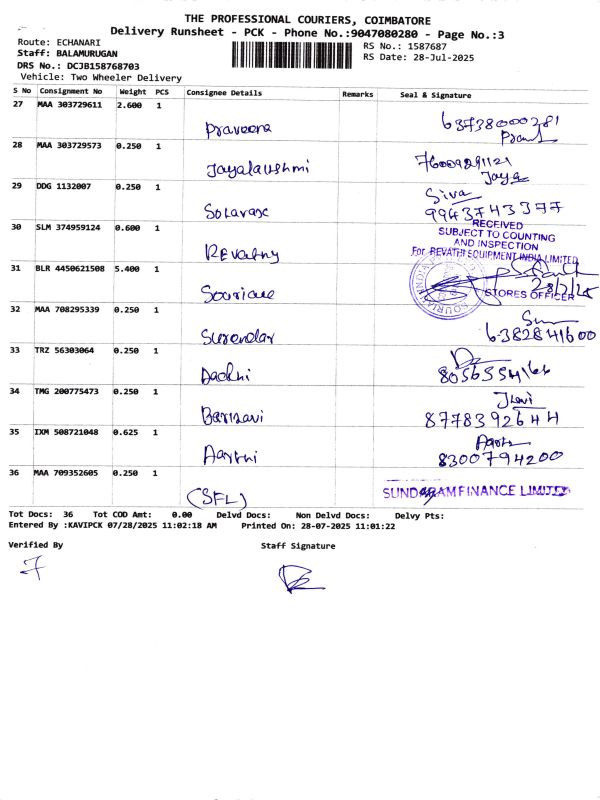 THE PROFESSIONAL COURIERS, COIMBATORE
Delivery Runsheet - PCK - Phone No.:9047080280 - Page No.:3
Route: ECHANARI
RS No.: 1587687
Staff: BALAMURUGAN
RS Date: 28-Jul-2025
DRS No.: DCJB158768703
Vehicle: Two Wheeler Delivery
S No Consignment No Weight PCS Consignee Details Remarks Seal & Signature
27 MAA 303729611 2.600 1
Praveena
28 MAA 303729573 0.250 1
Jayalakshmi
Jaya
29 DDG 1132007 0.250 1
Siva
9943743377
30 SLM 374959124 0.600 1
Revathy
RECEIVED
SUBJECT TO COUNTING
AND INSPECTION
For REVATHI EQUIPMENT INDIA LIMITED
31 BLR 4450621508 5.400 1
28/7/25
STORES OFFICER
32 MAA 708295339 0.250 1
Surendar
6382841600
33 TRZ 56303064 0.250 1
34 TMG 200775473 0.250 1
8778392644
35 IXM 508721048 0.625 1
Aarthi
8300794200
36 MAA 709352605 0.250 1
(SFL)
SUNDARAM FINANCE LIMITED
Tot Docs: 36 Tot COD Amt: 0.00 Delvd Docs: Non Delvd Docs: Delvy Pts:
Entered By :KAVIPCK 07/28/2025 11:02:18 AM Printed On: 28-07-2025 11:01:22
Verified By Staff Signature